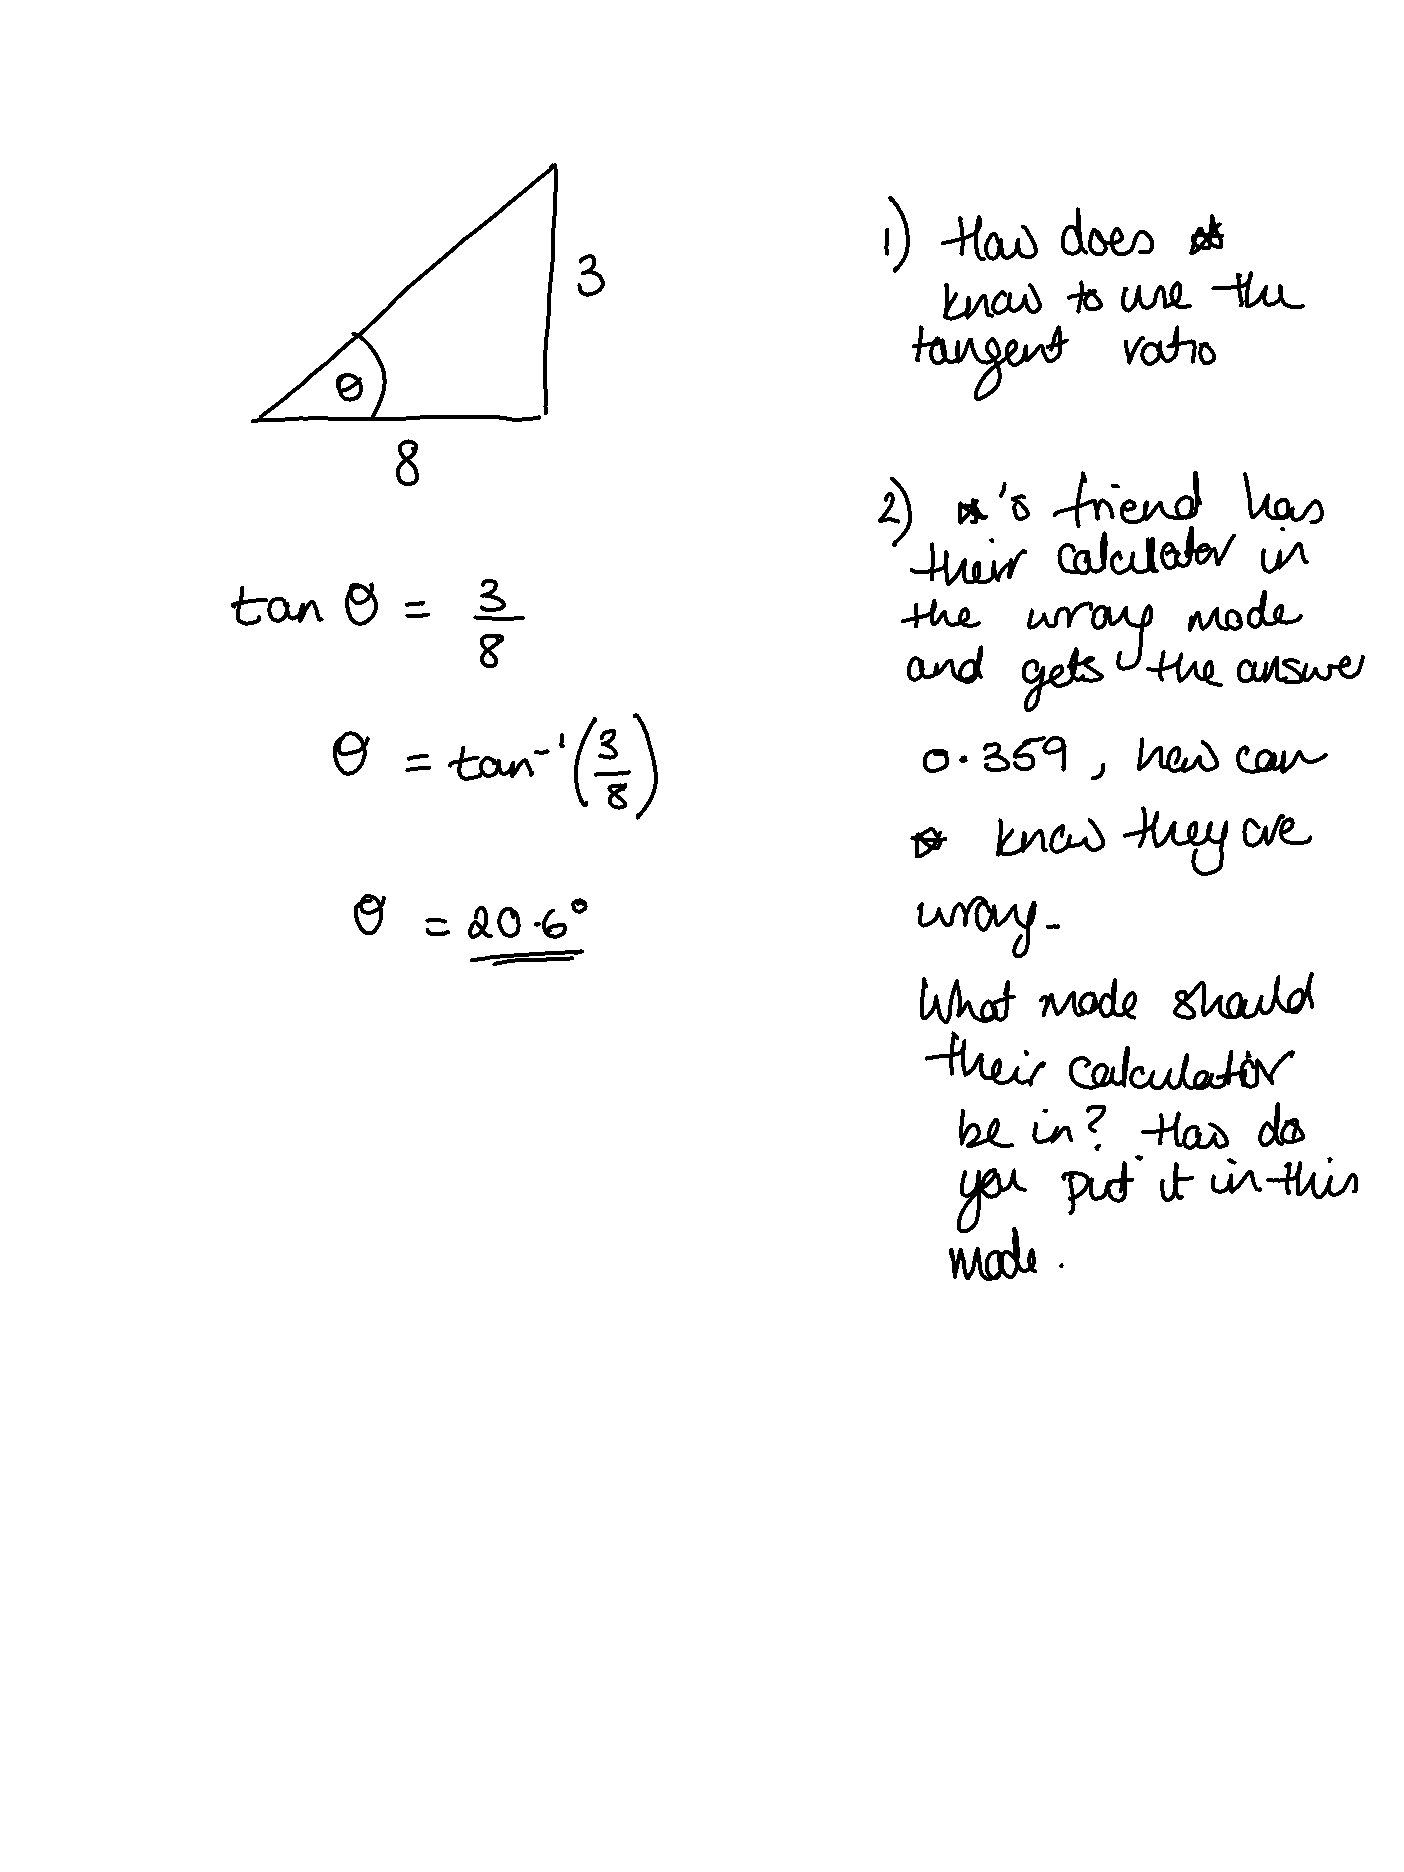 3
θ
8
tan θ = 3/8
θ = tan⁻¹(3/8)
θ = 20.6°
1) How does ☆
know to use the
tangent ratio
2) ☆'s friend has
their calculator in
the wrong mode
and gets the answer
0.359, how can
☆ know they are
wrong.
What mode should
their calculator
be in? How do
you put it in this
mode.